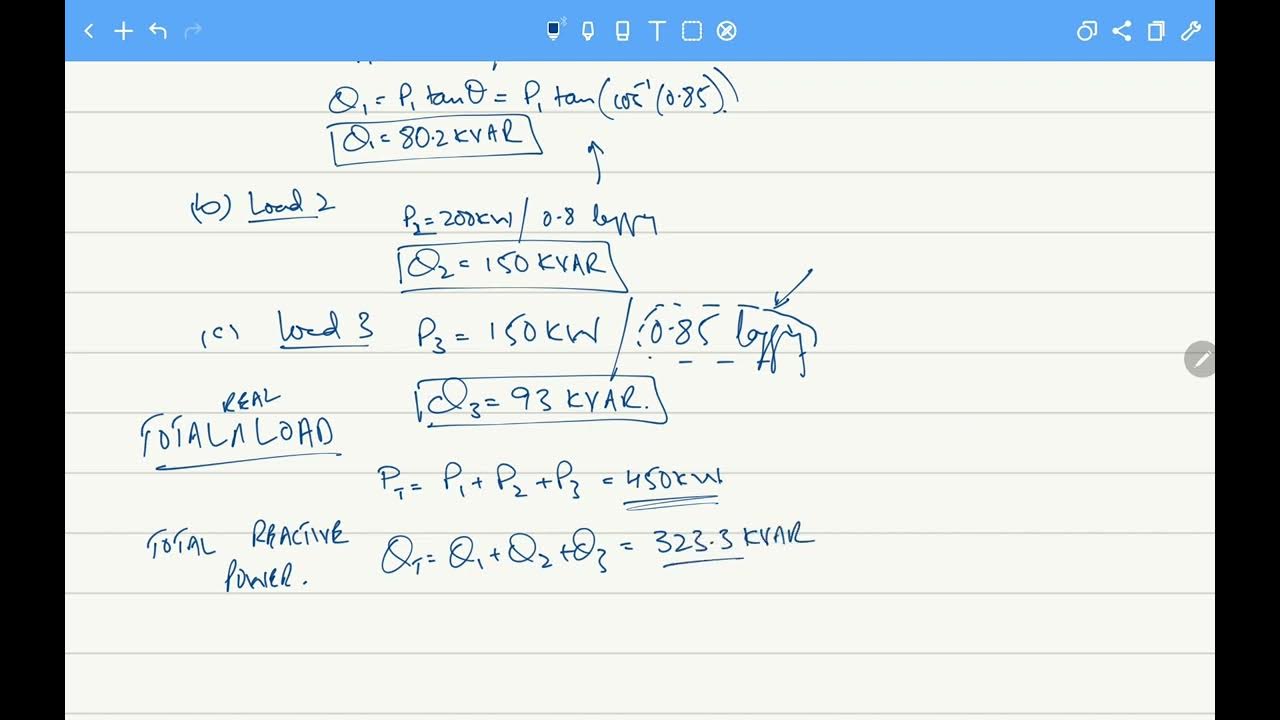 Q₁ = P₁ tanθ = P₁ tan(cos⁻¹(0.85))
Q₁ = 80.2 KVAR
(b) Load 2
P₂ = 200KW / 0.8 lagging
Q₂ = 150 KVAR
(c) Load 3 P₃ = 150KW / 0.85 lagging
Q₃ = 93 KVAR.
REAL
TOTAL ∧ LOAD
P_T = P₁ + P₂ + P₃ = 450KW
TOTAL REACTIVE Q_T = Q₁ + Q₂ + Q₃ = 323.3 KVAR
POWER.